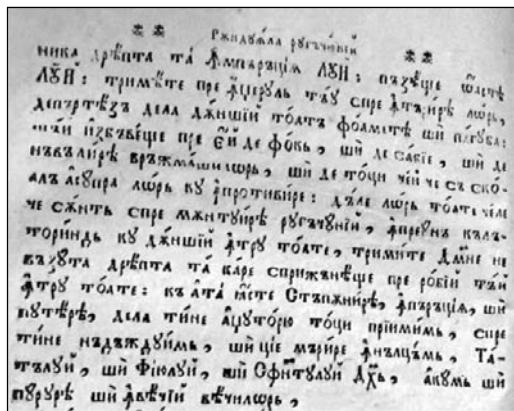 ** Рѫндꙋѧла рꙋгъчюнїй **
ника дрѣпта та ꙟмпъръцїѧ Лꙋй: пъзѣще ѡастѣ
Лꙋй: тримѣте пре ꙟџерꙋль тъꙋ спре ꙟтърирѣ лѡрь,
депъртѣзъ дела дѫншїй тоатъ фоаметѣ ши пагꙋба:
ши изъбъвѣще пре єй де фокь, ши де сабїе, ши де
нъвълирѣ врѫжмашилѡрь, ши де тоци чей че съ ско-
алъ асꙋпра лѡрь кꙋ ꙟпротивире: дъле лѡрь тоате чѣле
че сѫнть спре мѫнтꙋирѣ рꙋгъчꙋнїй, ꙟпреꙋнъ кълъ-
ториндь кꙋ дѫншїй ꙟтрꙋ тоате, тримите Дм҃не не
възꙋта дрѣпта та каре сприжънѣще пре робїй тъй
ꙟтрꙋ тоате: къ ата ꙗсте Стъпѫнирѣ, ꙟпъръцїѧ, ши
пꙋтѣрѣ, дела тине аџꙋторю тоци прїимимь, спре
тине надъждꙋимь, ши цїе мърире ꙟнълцъмь, Та-
тълꙋй, ши Фїюлꙋй, ши Сфнтꙋлꙋй Дх҃ь, акꙋмь ши
пꙋрꙋрѣ ши ꙟвѣчїй вѣчилѡрь,